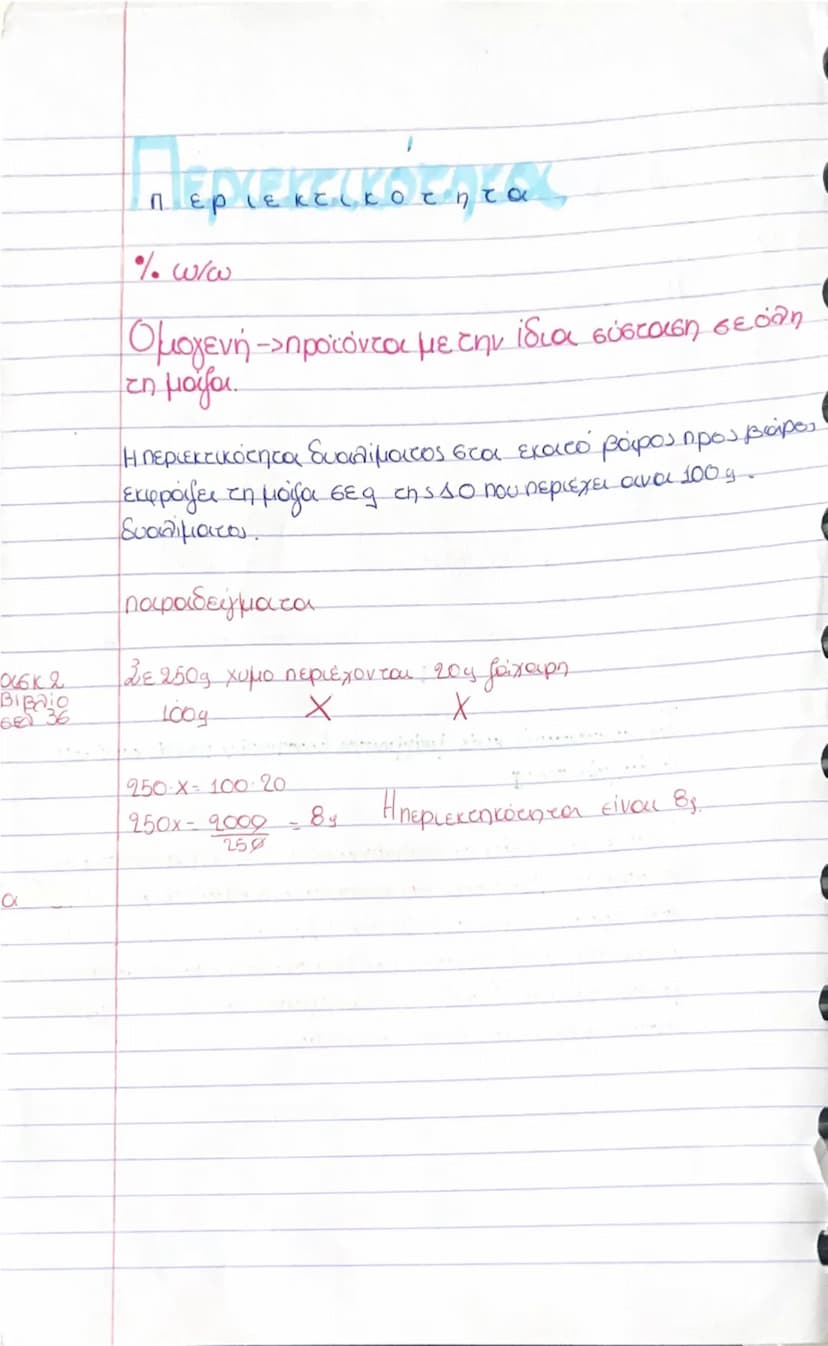 Περιεκτικότητα
περιεκτικότητα
% w/w
Ομογενή->προϊόντα με την ίδια σύσταση σε όλη
τη μάζα.
Η περιεκτικότητα διαλίματος στα εκατό βάρος προς βάρος
εκφράζει τη μάζα σε g της ΔΟ που περιέχει ανα 100g.
διαλίματος.
παραδείγματα
ασκ 2
Σε 250g χυμο περιέχονται 20g ζάχαρη
Βιβλίο
σελ 36
100g X X
250·x= 100·20
250x= 2000/250 = 8g Η περιεκτηκότητα είναι 8g.
α